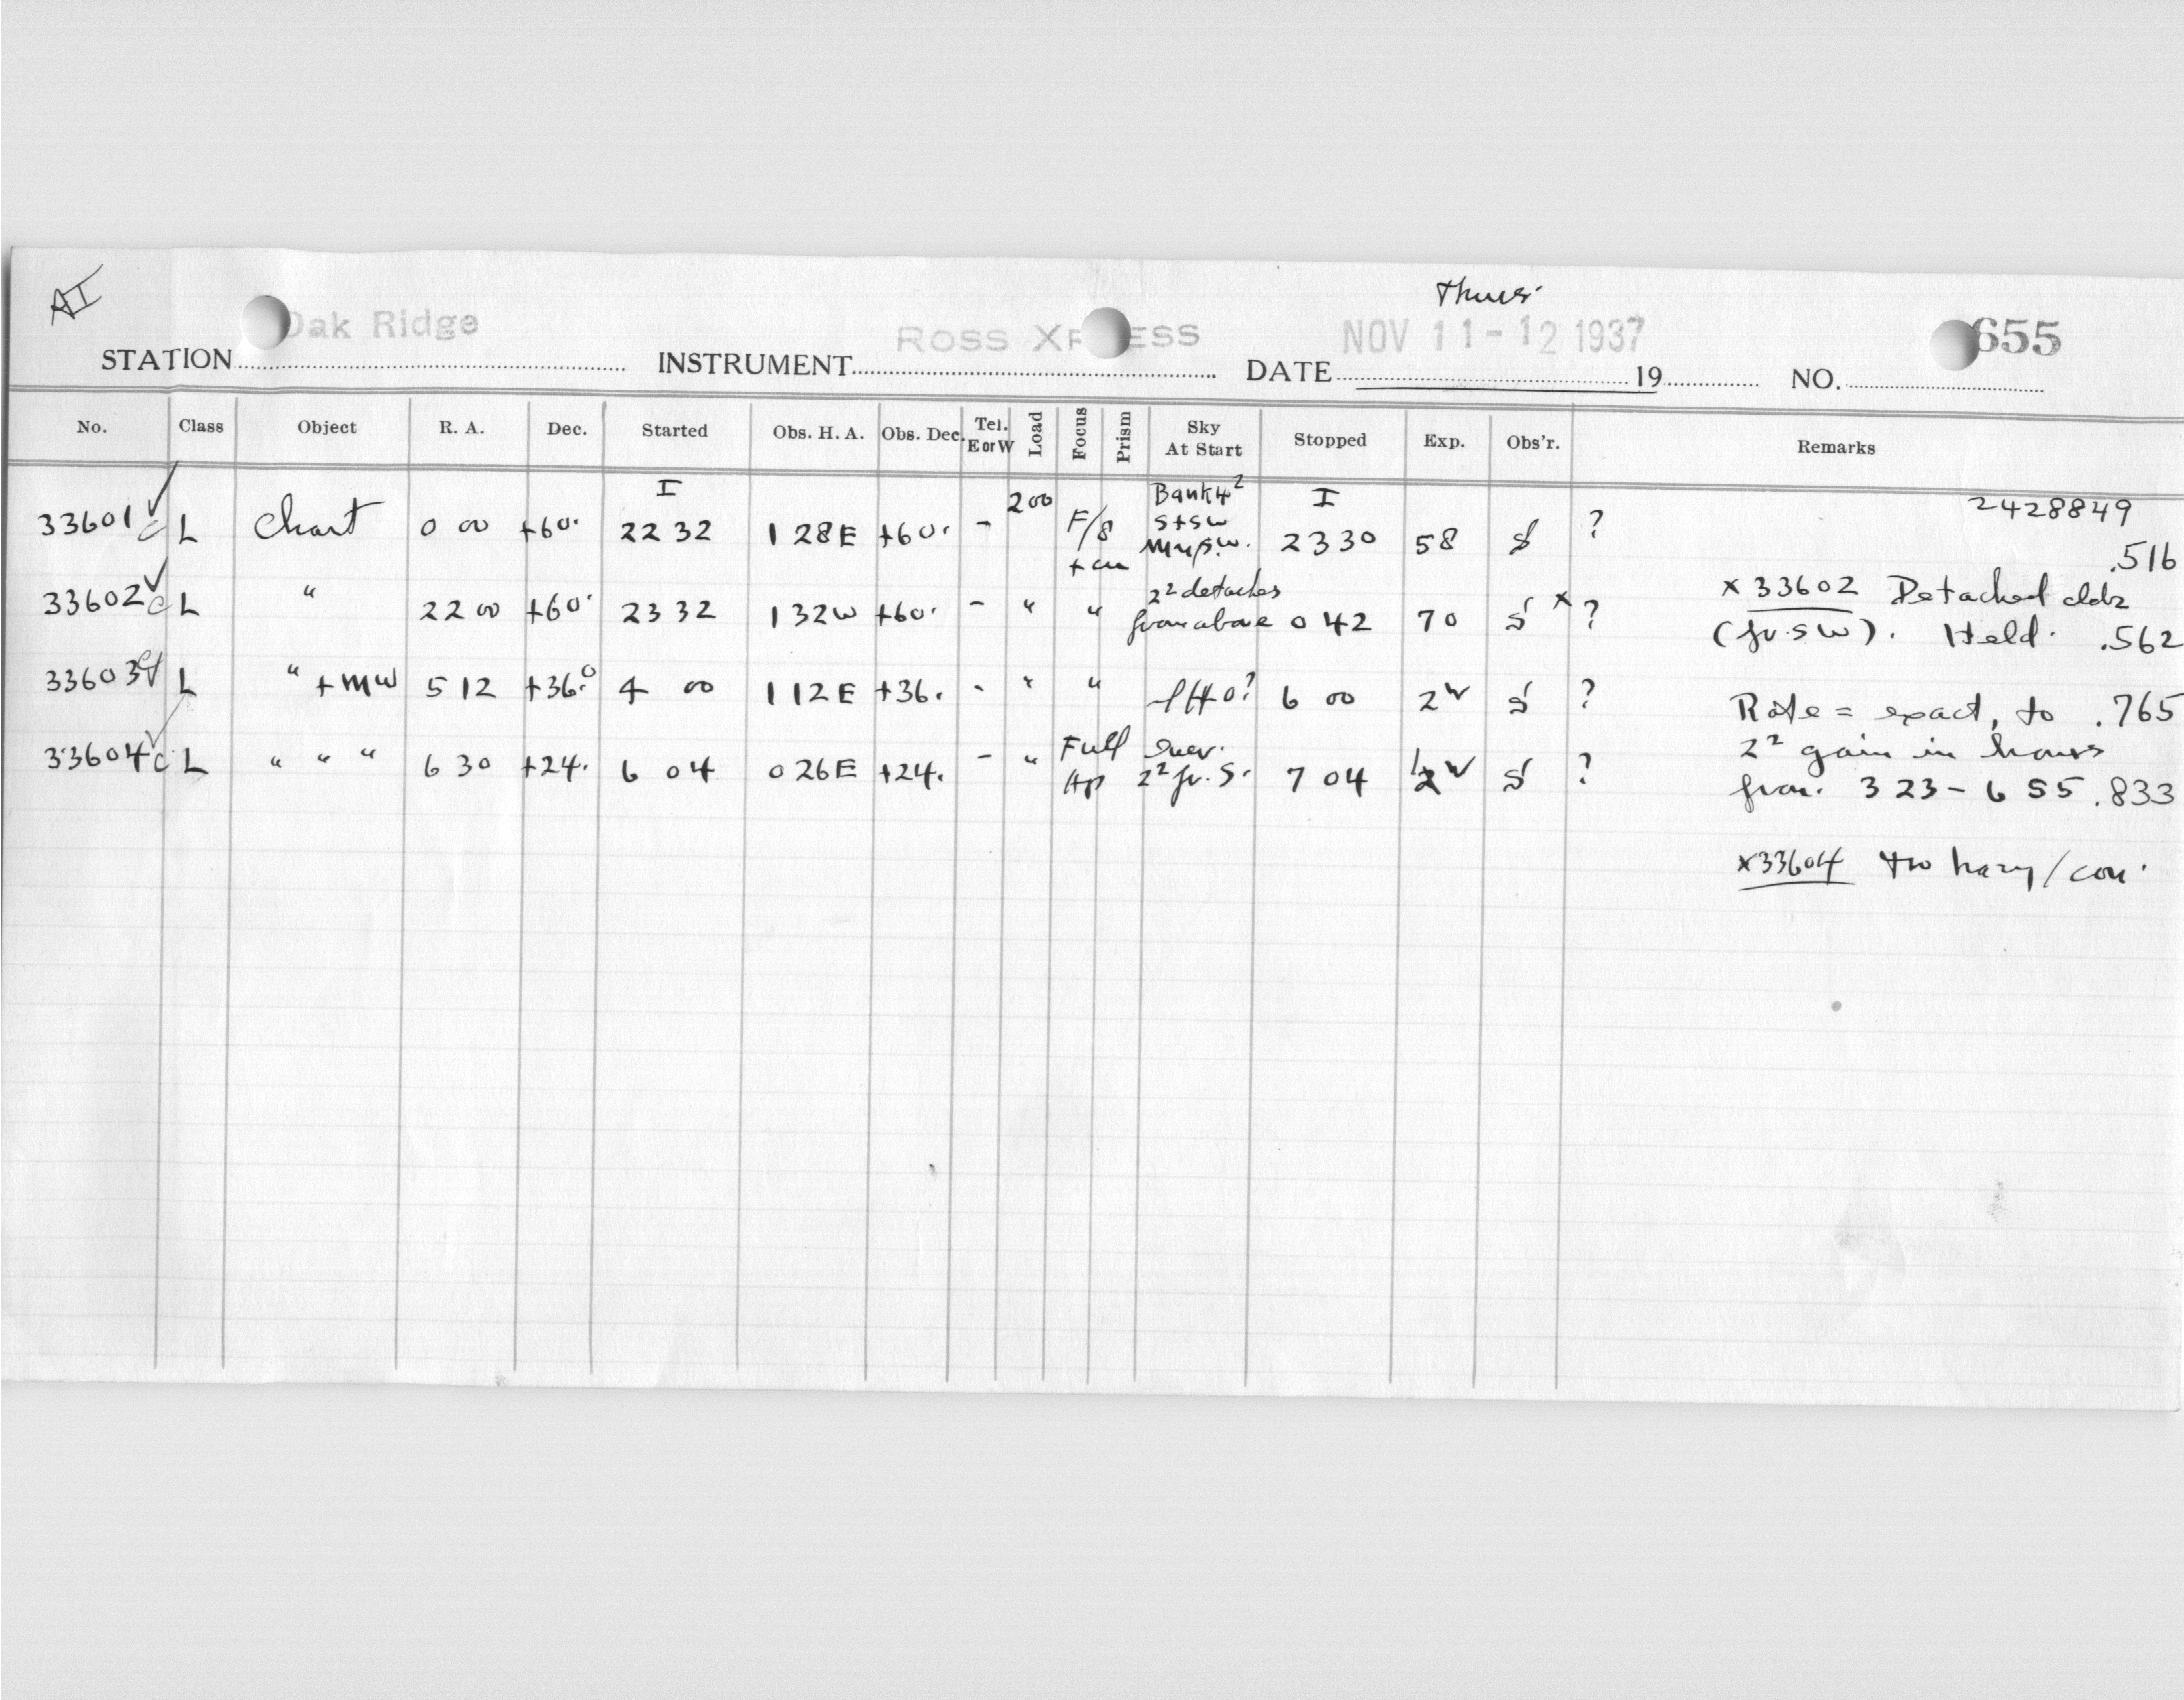 AI
Thurs.
STATION Oak Ridge INSTRUMENT ROSS XPRESS DATE NOV 11-12 1937 19 NO. 655
No. Class Object R. A. Dec. Started Obs. H. A. Obs. Dec. Tel. E or W Load Focus Prism Sky At Start Stopped Exp. Obs'r. Remarks
I 200 Bank 4² I 2428849
33601 c L Chart 0 00 +60. 22 32 1 28E +60. - F/8 S+SW 23 30 58 S ? .516
33602 c L " 22 00 +60. 23 32 1 32W +60. - " " 2² detaches from above 0 42 70 S x ? x 33602 Detached cldz
(fr. SW). Held. .562
33603 L " +MW 5 12 +36.0 4 00 1 12E +36. - " " 6 00 S ? Rate = exact, to .765
33604 c L " " " 6 30 +24. 6 04 0 26E +24. - " Full 2² fr. S. 7 04 S ? 2² gain in hours
from 3 23 - 6 55 .833
x33604 too hazy/con.